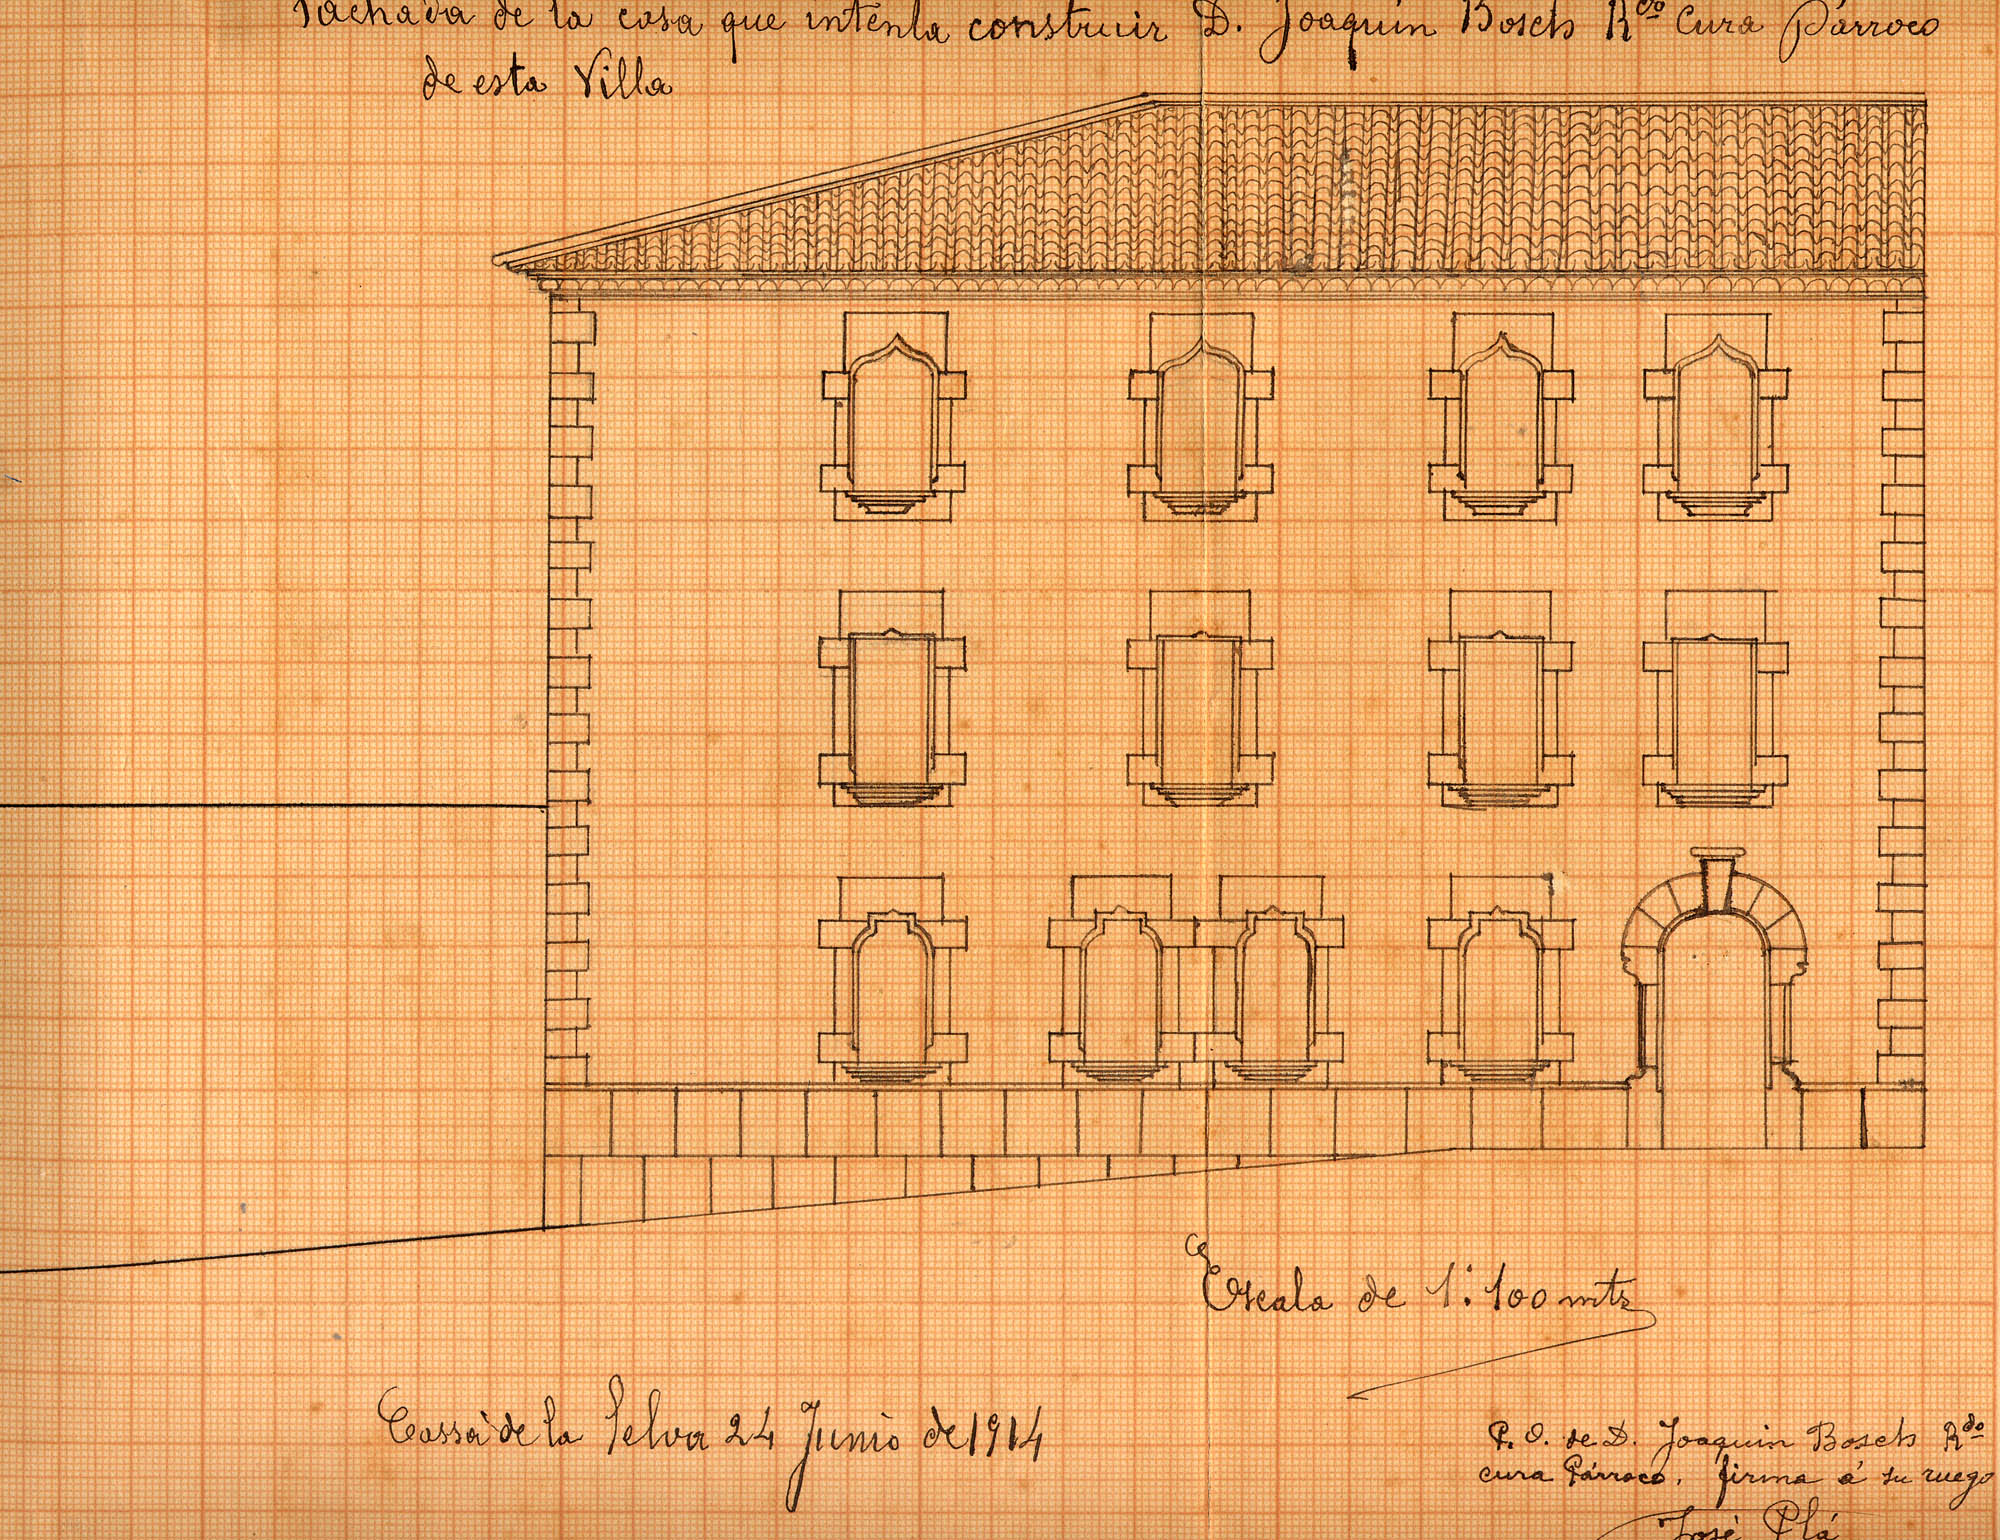 Fachada de la casa que intenta construir D. Joaquín Bosch Rdo Cura Párroco
de esta Villa
Escala de 1:100 mts
Cassá de la Selva 24 Junio de 1914
P. O. de D. Joaquin Bosch Rdo
cura Párroco, firma á su ruego
José Plá